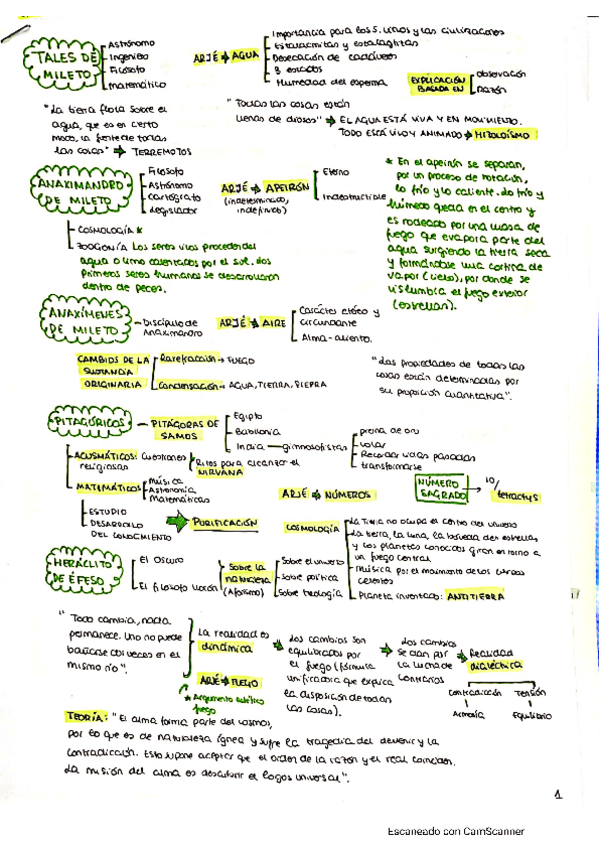 TALES DE MILETO
Astrónomo
Ingeniero
Filósofo
Matemático
ARJÉ → AGUA
Importancia para los S. vivos y las civilizaciones
Estalacmitas y estalagtitas
Desecación de cadáveres
3 estados
Humedad del esperma
EXPLICACIÓN BASADA EN
observación
razón
"La tierra flota sobre el
agua, que es en cierto
modo, la fuente de todas
las cosas" → TERREMOTOS
"Todas las cosas están
llenas de dioses" → EL AGUA ESTÁ VIVA Y EN MOVIMIENTO.
TODO ESTÁ VIVO Y ANIMADO → HILOZOÍSMO
ANAXIMANDRO DE MILETO
Filósofo
Astrónomo
Cartógrafo
Legislador
ARJÉ → APEIRÓN
(indeterminado,
indefinido)
Eterno
Indestructible
* En el apeirón se separan,
por un proceso de rotación,
lo frío y lo caliente. Lo frío y
húmedo queda en el centro y
es rodeado por una masa de
fuego que evapora parte del
agua surgiendo la tierra seca
y formándose una cortina de
vapor (cielo), por donde se
vislumbra el fuego exterior
(estrellas).
COSMOLOGÍA *
ZOOGONÍA Los seres vivos proceden del
agua o limo calentados por el sol. Los
primeros seres humanos se desarrollaron
dentro de peces.
ANAXÍMENES DE MILETO
Discípulo de
Anaximandro
ARJÉ → AIRE
Carácter etéreo y
circundante
Alma-aliento.
CAMBIOS DE LA
SUSTANCIA
ORIGINARIA
Rarefracción → FUEGO
Condensación → AGUA, TIERRA, PIEDRA
"Las propiedades de todas las
cosas están determinadas por
su proporción cuantitativa".
PITAGÓRICOS
PITÁGORAS DE
SAMOS
Egipto
Babilonia
India — gimnosofistas
pierna de oro
volar
Recordar vidas pasadas
transformarse
ACUSMÁTICOS: Cuestiones
religiosas
Ritos para alcanzar el
NIRVANA
MATEMÁTICOS
Música
Astronomía
Matemáticas
ARJÉ → NÚMEROS
NÚMERO
SAGRADO
10/
tetractys
ESTUDIO
DESARROLLO
DEL CONOCIMIENTO
→ PURIFICACIÓN
COSMOLOGÍA
La Tierra no ocupa el centro del universo
La tierra, la luna, la bóveda de estrellas
y los planetas conocidos giran en torno a
un fuego central
Música por el movimiento de los cuerpos
celestes
Planeta inventado: ANTITIERRA
HERÁCLITO DE ÉFESO
El Oscuro
El filósofo llorón
Sobre la
naturaleza
(Aforismo)
Sobre el universo
Sobre política
Sobre teología
"Todo cambia, nada
permanece. Uno no puede
bañarse dos veces en el
mismo río".
La realidad es
dinámica
ARJÉ → FUEGO
fuego
Los cambios son
equilibrados por
el fuego (fórmula
unificadora que explica
la disposición de todas
las cosas).
Los cambios
se dan por
la lucha de
contrarios
Realidad
dialéctica
Contradicción
Tensión
Armonía
Equilibrio
TEORÍA: "El alma forma parte del cosmos,
por lo que es de naturaleza ígnea y sufre la tragedia del devenir y la
contradicción. Esto supone aceptar que el orden de la razón y el real coinciden.
La misión del alma es descubrir el logos universal".
1
Escaneado con CamScanner